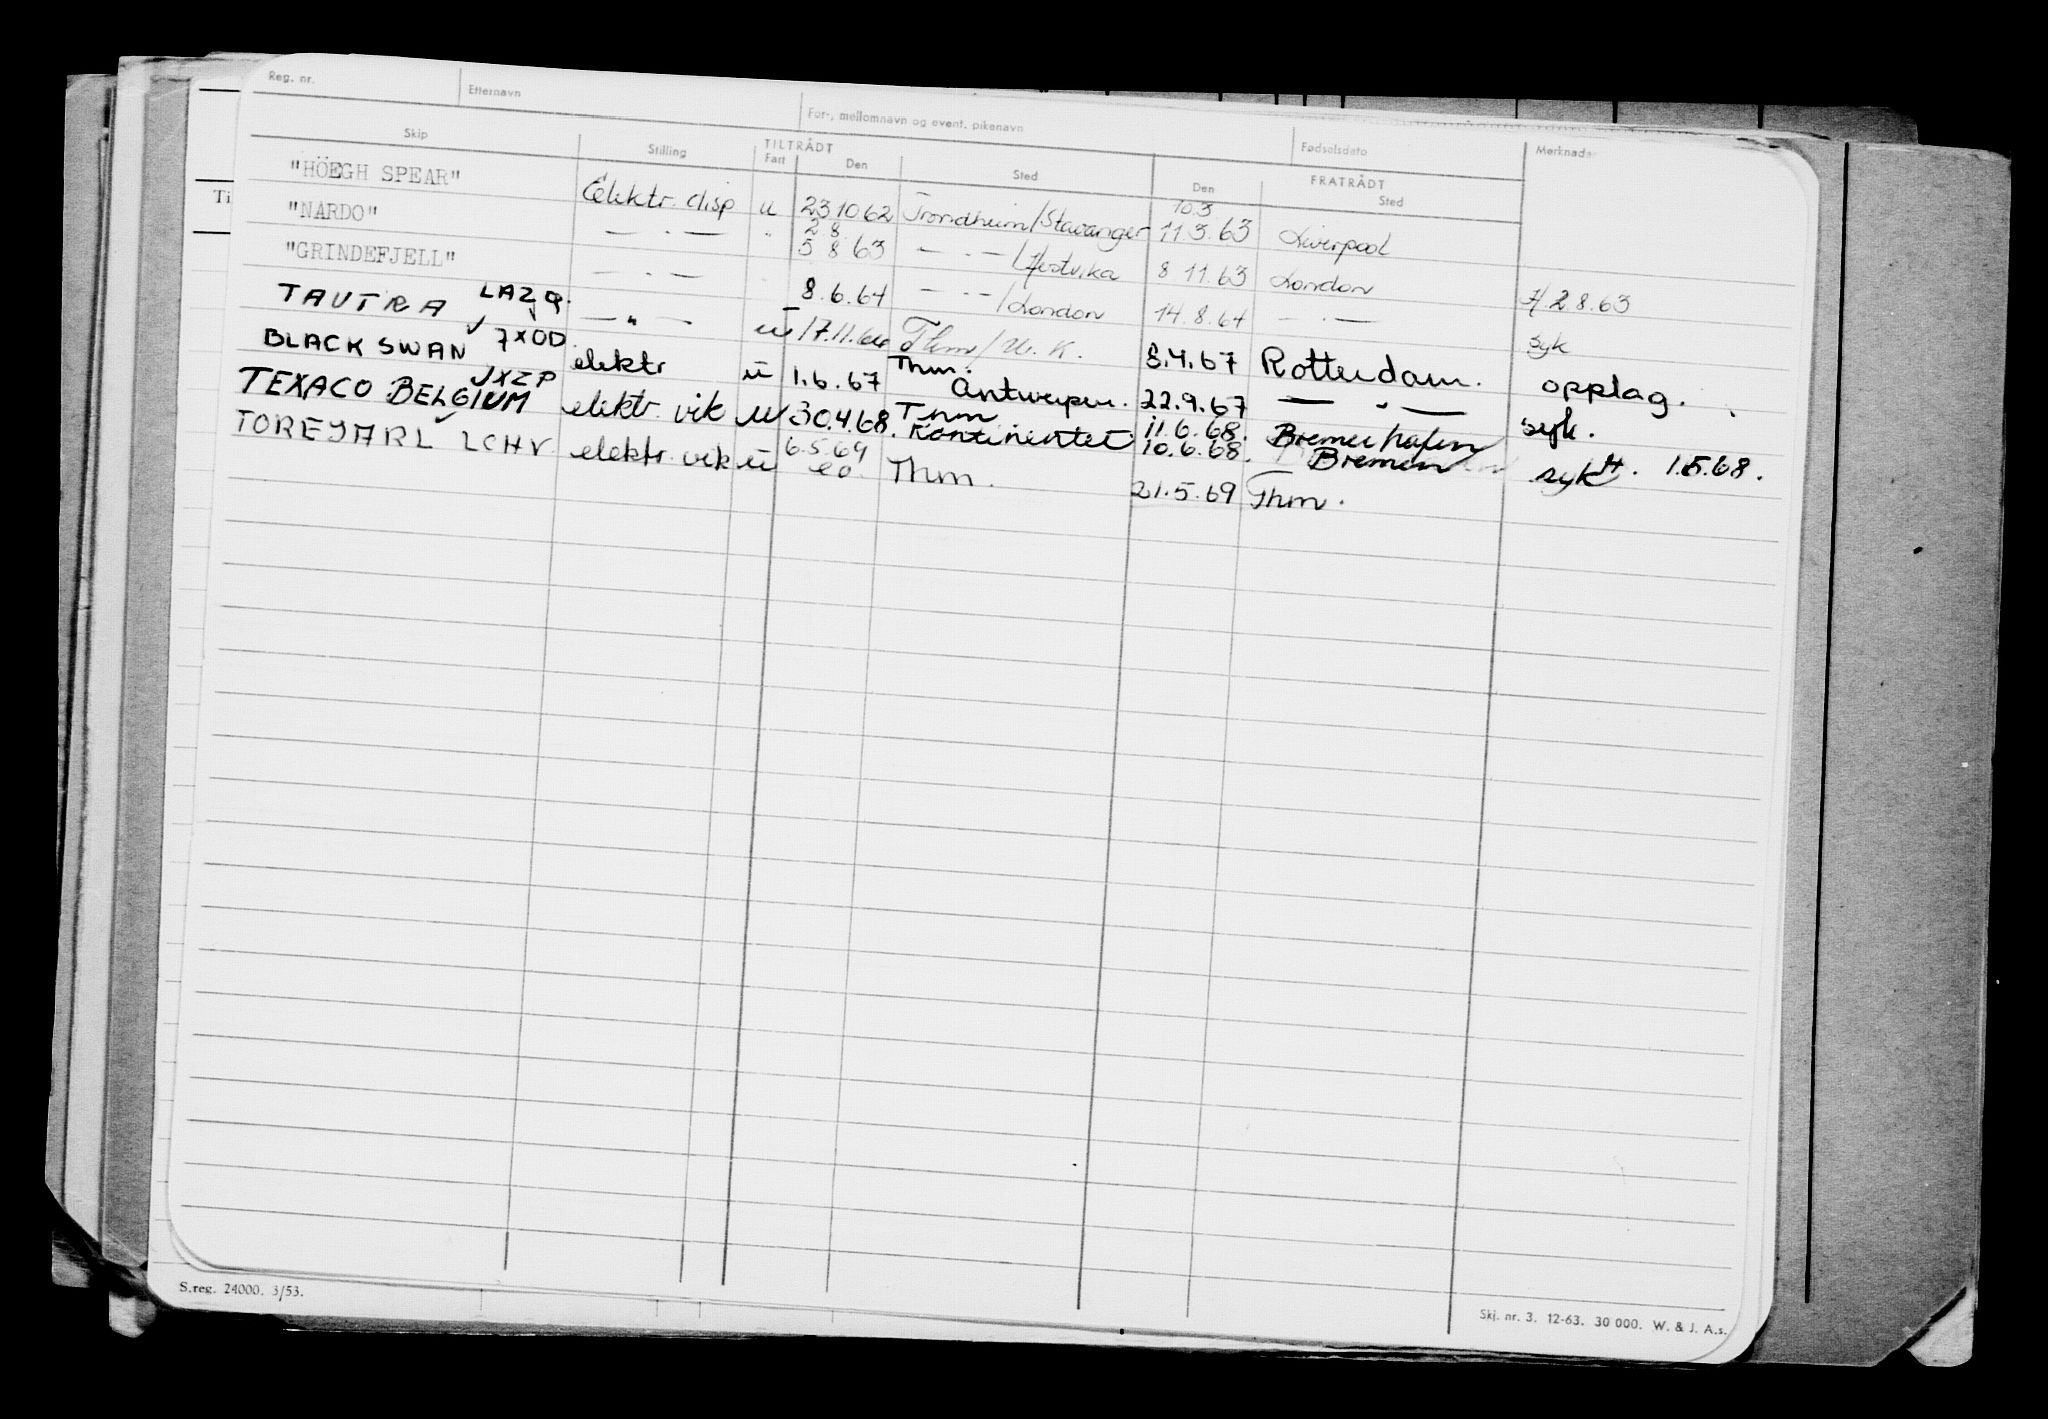 Reg. nr. Etternavn For-, mellomnavn og event. pikenavn Fødselsdato Merknader
Skip Stilling TILTRÅDT FRATRÅDT
Fart Den Sted Den Sted
"HÖEGH SPEAR" Elektr. disp u 23 10 62 Trondheim/Stavanger 10.3 11.3.63 Liverpool
"NARDO" — . — " 2 8 5 8 63 — . — /Hestvika 8 11.63 London H 2.8.63
"GRINDEFJELL" — . — 8.6.64 — . — /London 14.8.64 — . — syk
TAUTRA LAZQ. — " — u 17.11.66 Thm/U.K. 8.4.67 Rotterdam. opplag.
BLACK SWAN 7XOD. elektr u 1.6.67 Thm. Antwerpen. 22.9.67 — " — syk.
TEXACO BELGIUM JXZP elektr. vik u 30.4.68. Thm Kontinentet 11.6.68. 10.6.68. Bremerhafen Bremen syk H. 1.5.68.
TOREJARL LCHV. elektr. vik u 6.5.69 Thm. 21.5.69 Thm.
Ti
S.reg. 24000. 3/53.
Skj. nr. 3. 12-63. 30 000. W. & J. A.s.